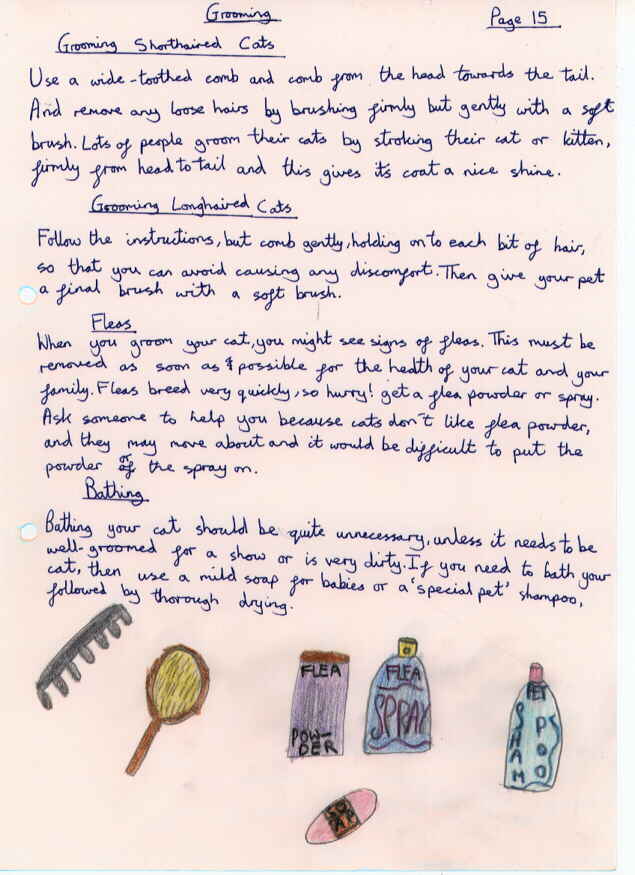 Grooming
Page 15
Grooming Shorthaired Cats
Use a wide-toothed comb and comb from the head towards the tail.
And remove any loose hairs by brushing firmly but gently with a soft
brush. Lots of people groom their cats by stroking their cat or kitten,
firmly from head to tail and this gives it's coat a nice shine.
Grooming Longhaired Cats
Follow the instructions, but comb gently, holding on to each bit of hair,
so that you can avoid causing any discomfort. Then give your pet
a final brush with a soft brush.
Fleas
When you groom your cat, you might see signs of fleas. This must be
removed as soon as possible for the health of your cat and your
family. Fleas breed very quickly, so hurry! get a flea powder or spray.
Ask someone to help you because cats don't like flea powder,
and they may move about and it would be difficult to put the
powder or the spray on.
Bathing
Bathing your cat should be quite unnecessary, unless it needs to be
well-groomed for a show or is very dirty. If you need to bath your
cat, then use a mild soap for babies or a 'special pet' shampoo,
followed by thorough drying.
FLEA
POW-
DER
FLEA
SPRAY
PET
SHAM
POO
SOAP